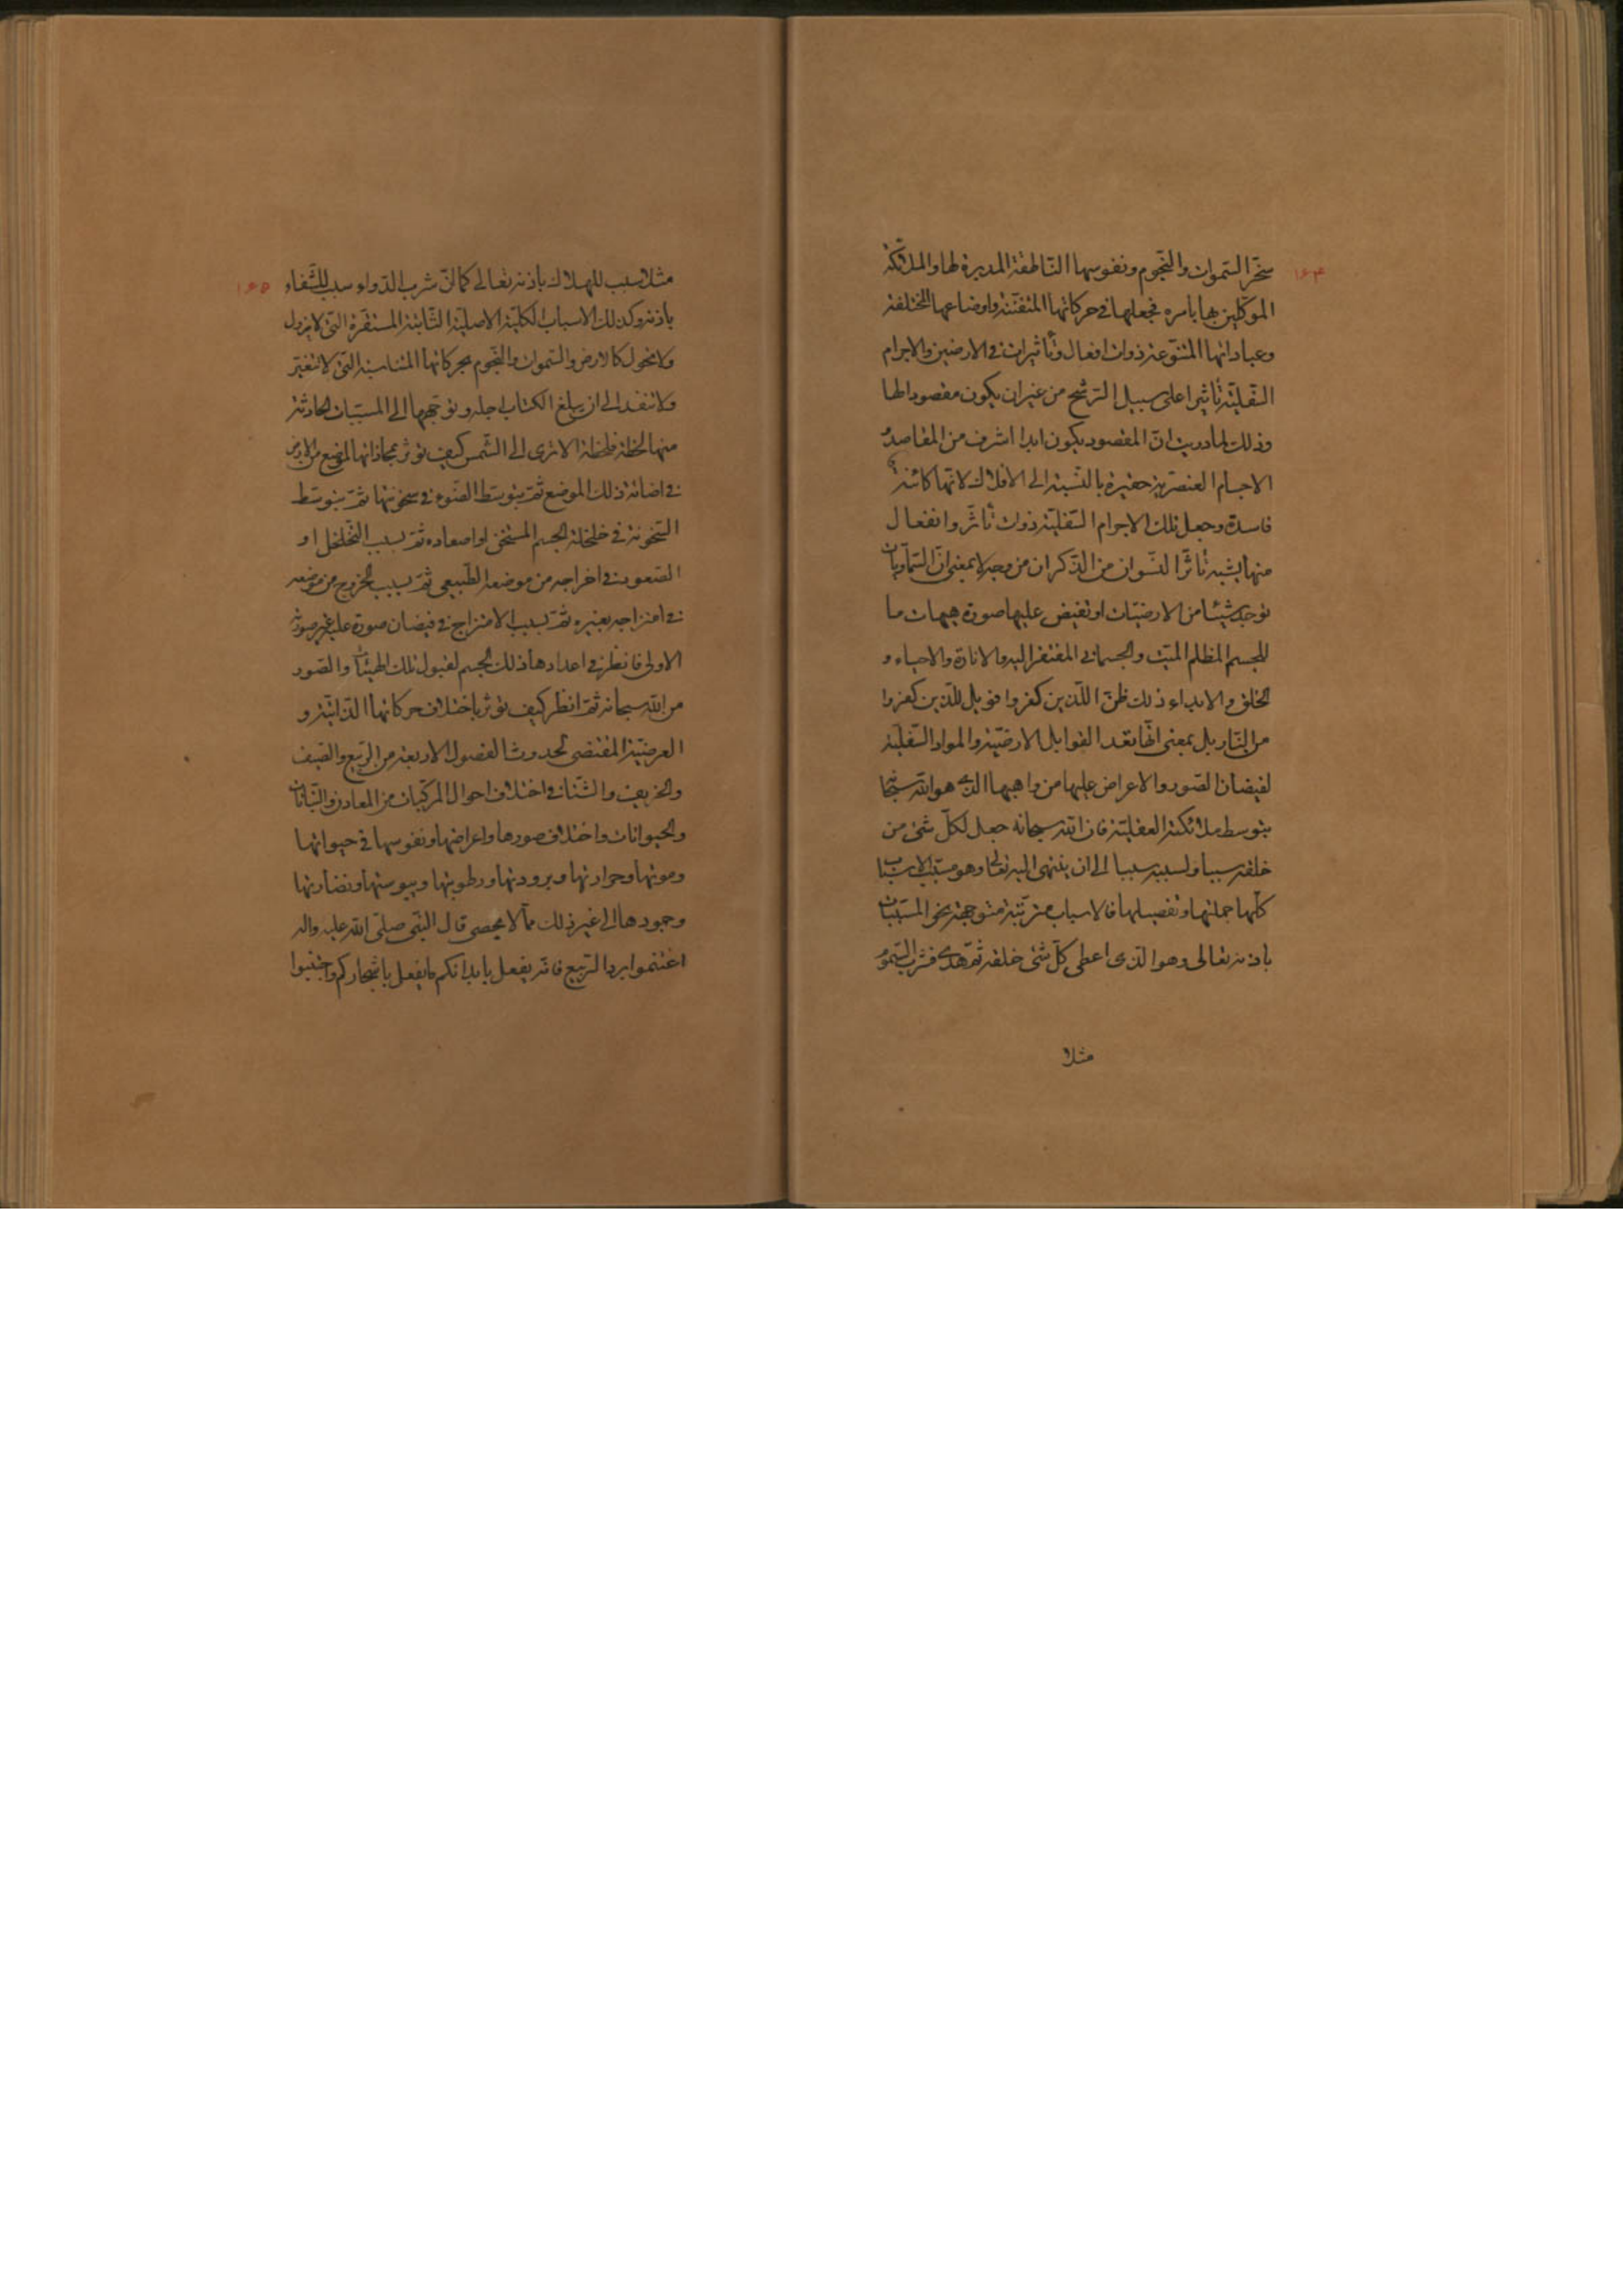 ۱۶۴
سخّر السّموات والنّجوم ونفوسها النّاطقة المدبرة لها والملائكة
الموكّلين بها بأمره فجعلها في حركاتها المتفنّنة واوضاعها المختلفة
وعباداتها المتنوّعة ذوات افعال وتأثيرات في الارضين والاجرام
السّفليّة تأثيرا على سبيل الترشّح من غير ان يكون مقصودا لها
وذلك لما دريت انّ المقصود يكون ابدا اشرف من المقاصد و
الاجسام العنصريّة حقيرة بالنّسبة الى الافلاك لانّها كائنة
فاسدة وجعل تلك الاجرام السّفليّة ذوات تأثّر وانفعال
منها يشبه تأثّر النّسوان من الذّكران من وجه لا بمعنى انّ السّماويّات
توجد شيئا من الارضيّات او تفيض عليها صورة هيهات ما
للجسم المظلم الميّت والجسماني المفتقر اليه والانارة والاحياء و
الخلق والابداء ذلك ظنّ الّذين كفروا فويل للّذين كفروا
من النّار بل بمعنى انّها تعدّ القوابل الارضيّة والموادّ السّفليّة
لفيضان الصّور والاعراض عليها من واهبها الّذي هو الله سبحانه
بتوسط ملائكته العقليّة فان الله سبحانه جعل لكلّ شئ من
خلقه سببا ولسببه سببا الى ان ينتهى اليه تعالى وهو مسبّب الاسباب
كلّها جملتها وتفصيلها فالاسباب مترتّبة متوجهة نحو المسبّبات
باذنه تعالى وهو الّذى اعطى كلّ شئ خلقه ثمّ هدى فشرب السّموم
مثلا
۱۶۵
مثلا سبب للهلاك باذنه تعالى كما انّ شرب الدّواء سبب للشّفاء
باذنه وكذلك الاسباب الكليّة الاصليّة الثّابتة المستقرّة الّتى لا يزول
ولا يحول كالارض والسّموات والنّجوم بحركاتها المتناسبة الّتى لا تتغيّر
ولا تنفد الى ان يبلغ الكتاب اجله وتوجّهها الى المسبّبات الحادثة
منها لحظة فلحظة الا ترى الى الشّمس كيف تؤثر بمحاذاتها لموضع من الارض
في اضائة ذلك الموضع ثمّ بتوسّط الضّوء في سخونتها ثمّ بتوسّط
السّخونة في خلخلة الجسم المتسخّن او اصعاده ثمّ بسبب التّخلخل او
الصّعود في اخراجه من موضعه الطّبيعي ثمّ بسبب الخروج من موضعه
في امتزاجه بغيره ثمّ بسبب الامتزاج في فيضان صورة عليه غير صورته
الاولى فانظر في اعدادها ذلك الجسم لقبول تلك الهيئات والصّور
من الله سبحانه ثمّ انظر كيف تؤثر باختلاف حركاتها الذّاتيّة و
العرضيّة المقتضى لحدوث الفصول الاربعة من الرّبيع والصّيف
والخريف والشّتاء في اختلاف احوال المركّبات من المعادن والنّباتات
والحيوانات واختلاف صورها واعراضها ونفوسها في حيوتها
وموتها وحرارتها وبرودتها ورطوبتها ويبوستها ونضارتها
وجمودها الى غير ذلك ممّا لا يحصى قال النّبى صلّى الله عليه واله
اغتنموا برد الرّبيع فانّه يفعل بابدانكم ما يفعل باشجاركم واجتنبوا